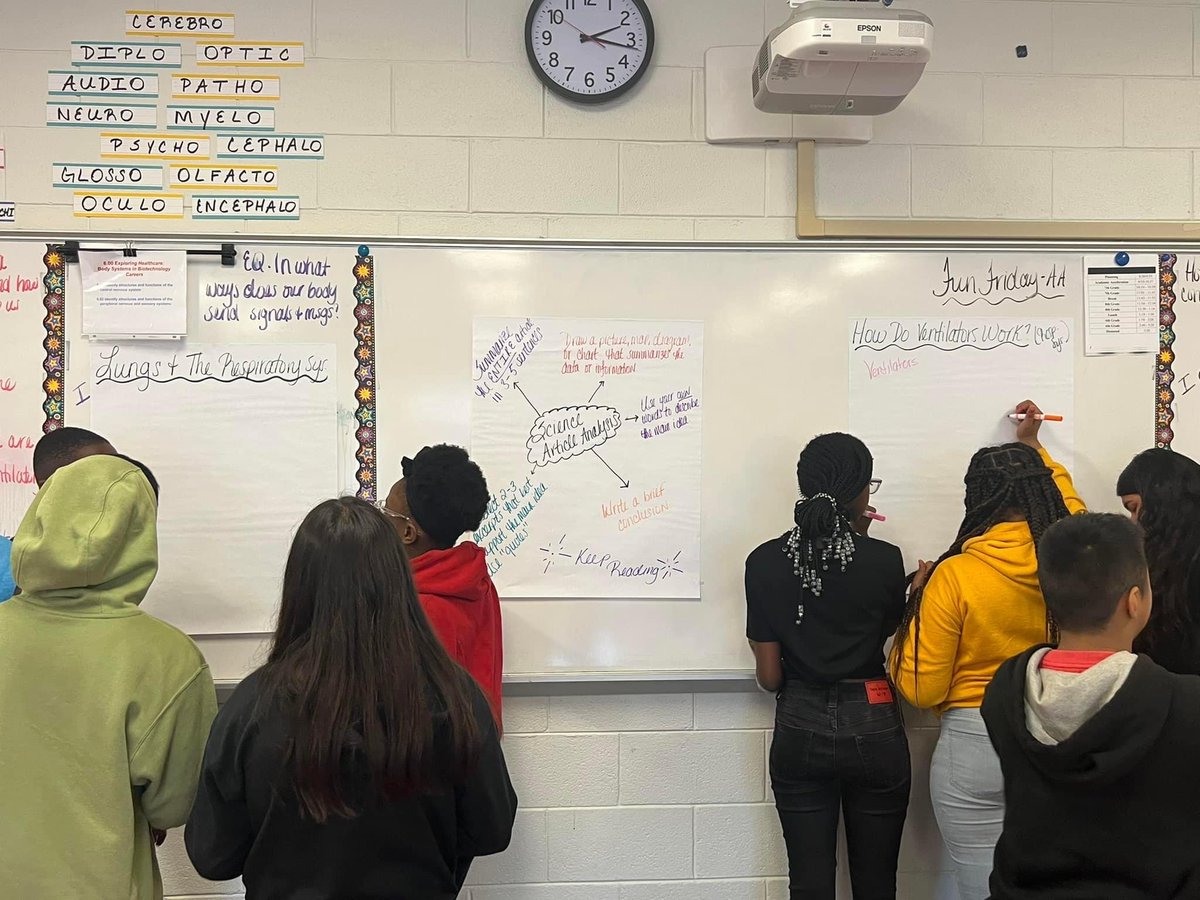 CEREBRO
DIPLO
OPTIC
AUDIO
PATHO
NEURO
MYELO
PSYCHO
CEPHALO
GLOSSO
OLFACTO
OCULO
ENCEPHALO
CHI
10 11 12 1 2 3 4 5 6 7 8 9
EPSON
how
us
are
6.00 Exploring Healthcare
Body Systems in Biotechnology
Careers
EQ. In what
ways does our body
send signals + msgs?
I
Lungs + The Respiratory Sys
Summarize
the ENTIRE article
in 3-5 sentences
Draw a picture, map, diagram,
or chart that summarizes the
data or information
Science
Article Analysis
Use your own
words to describe
the main idea
2-3
excerpts that best
support the main idea
"quotes"
Write a brief
conclusion
Keep
Reading
Fun Friday-AA
How Do Ventilators Work?
Ventilators
I